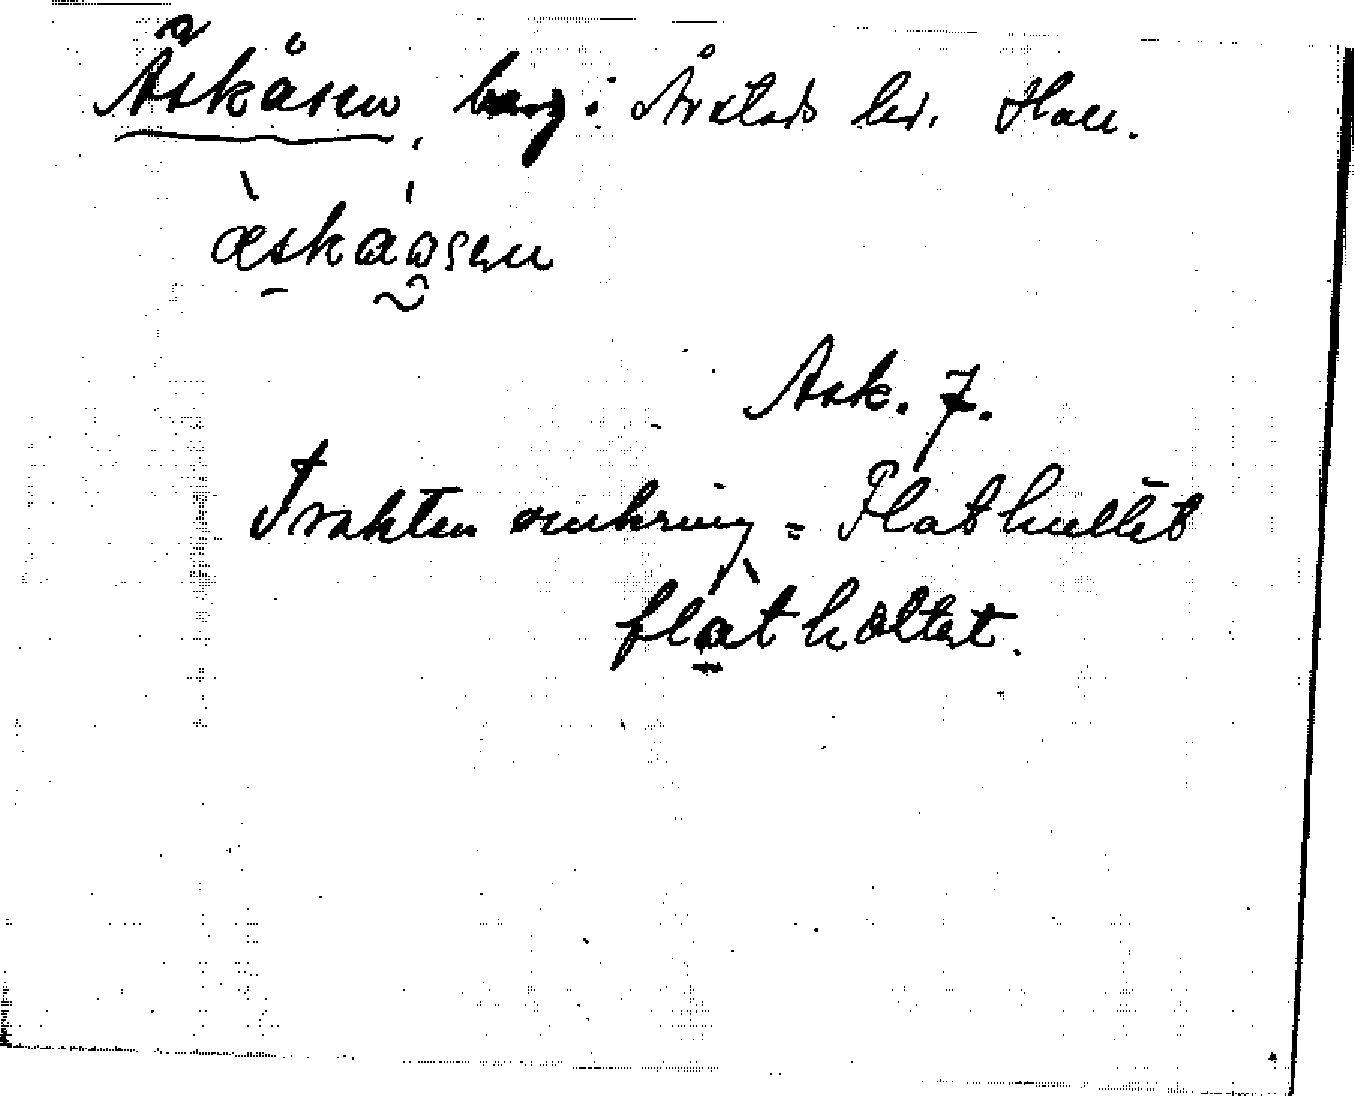 Askåsen, berg: Årstads hd. Hall.
æskåɷsen
Ask. 7.
Trakten omkring = Flathultet
flathɷltet.